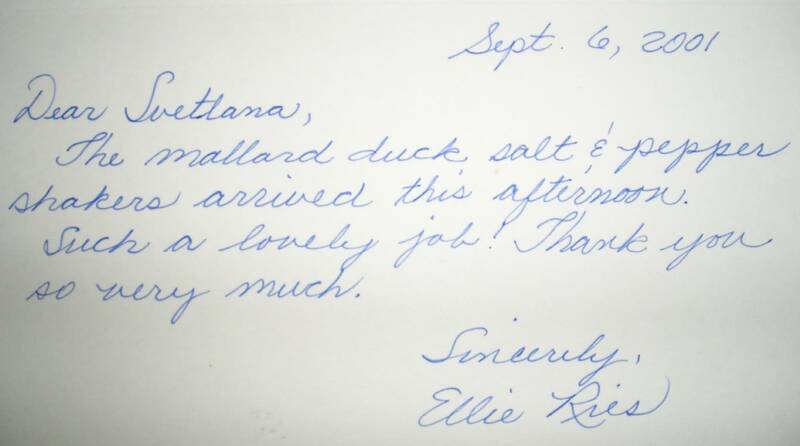 Sept. 6, 2001
Dear Svetlana,
The mallard duck salt & pepper
shakers arrived this afternoon.
Such a lovely job! Thank you
so very much.
Sincerely,
Ellie Ries